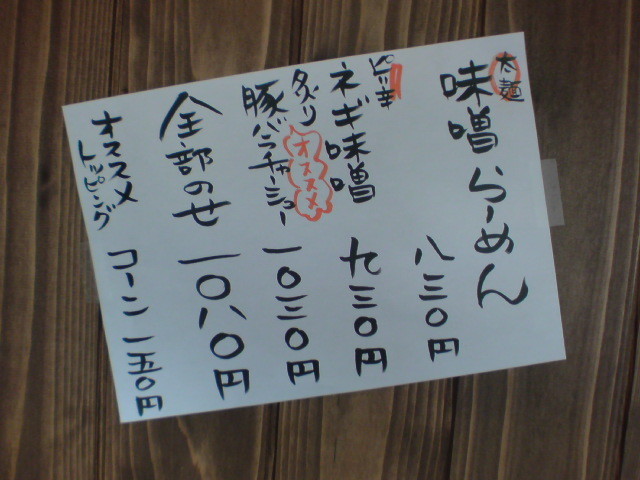 太麺
味噌らーめん
八三〇円
ピリ辛
ネギ味噌
九三〇円
炙り
豚バラチャーシュー
オススメ
一〇三〇円
全部のせ
一〇八〇円
オススメ
トッピング
コーン 一五〇円